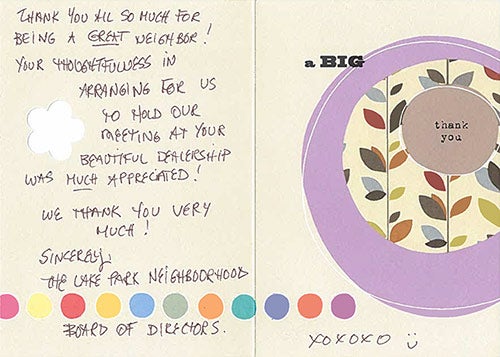 THANK YOU ALL SO MUCH FOR
BEING A GREAT NEIGHBOR!
YOUR THOUGHTFULNESS IN
ARRANGING FOR US
TO HOLD OUR
MEETING AT YOUR
BEAUTIFUL DEALERSHIP
WAS MUCH APPRECIATED!
WE THANK YOU VERY
MUCH!
SINCERELY,
THE LAKE PARK NEIGHBOORHOOD
BOARD OF DIRECTORS.
a BIG
thank
you
XOXOXO